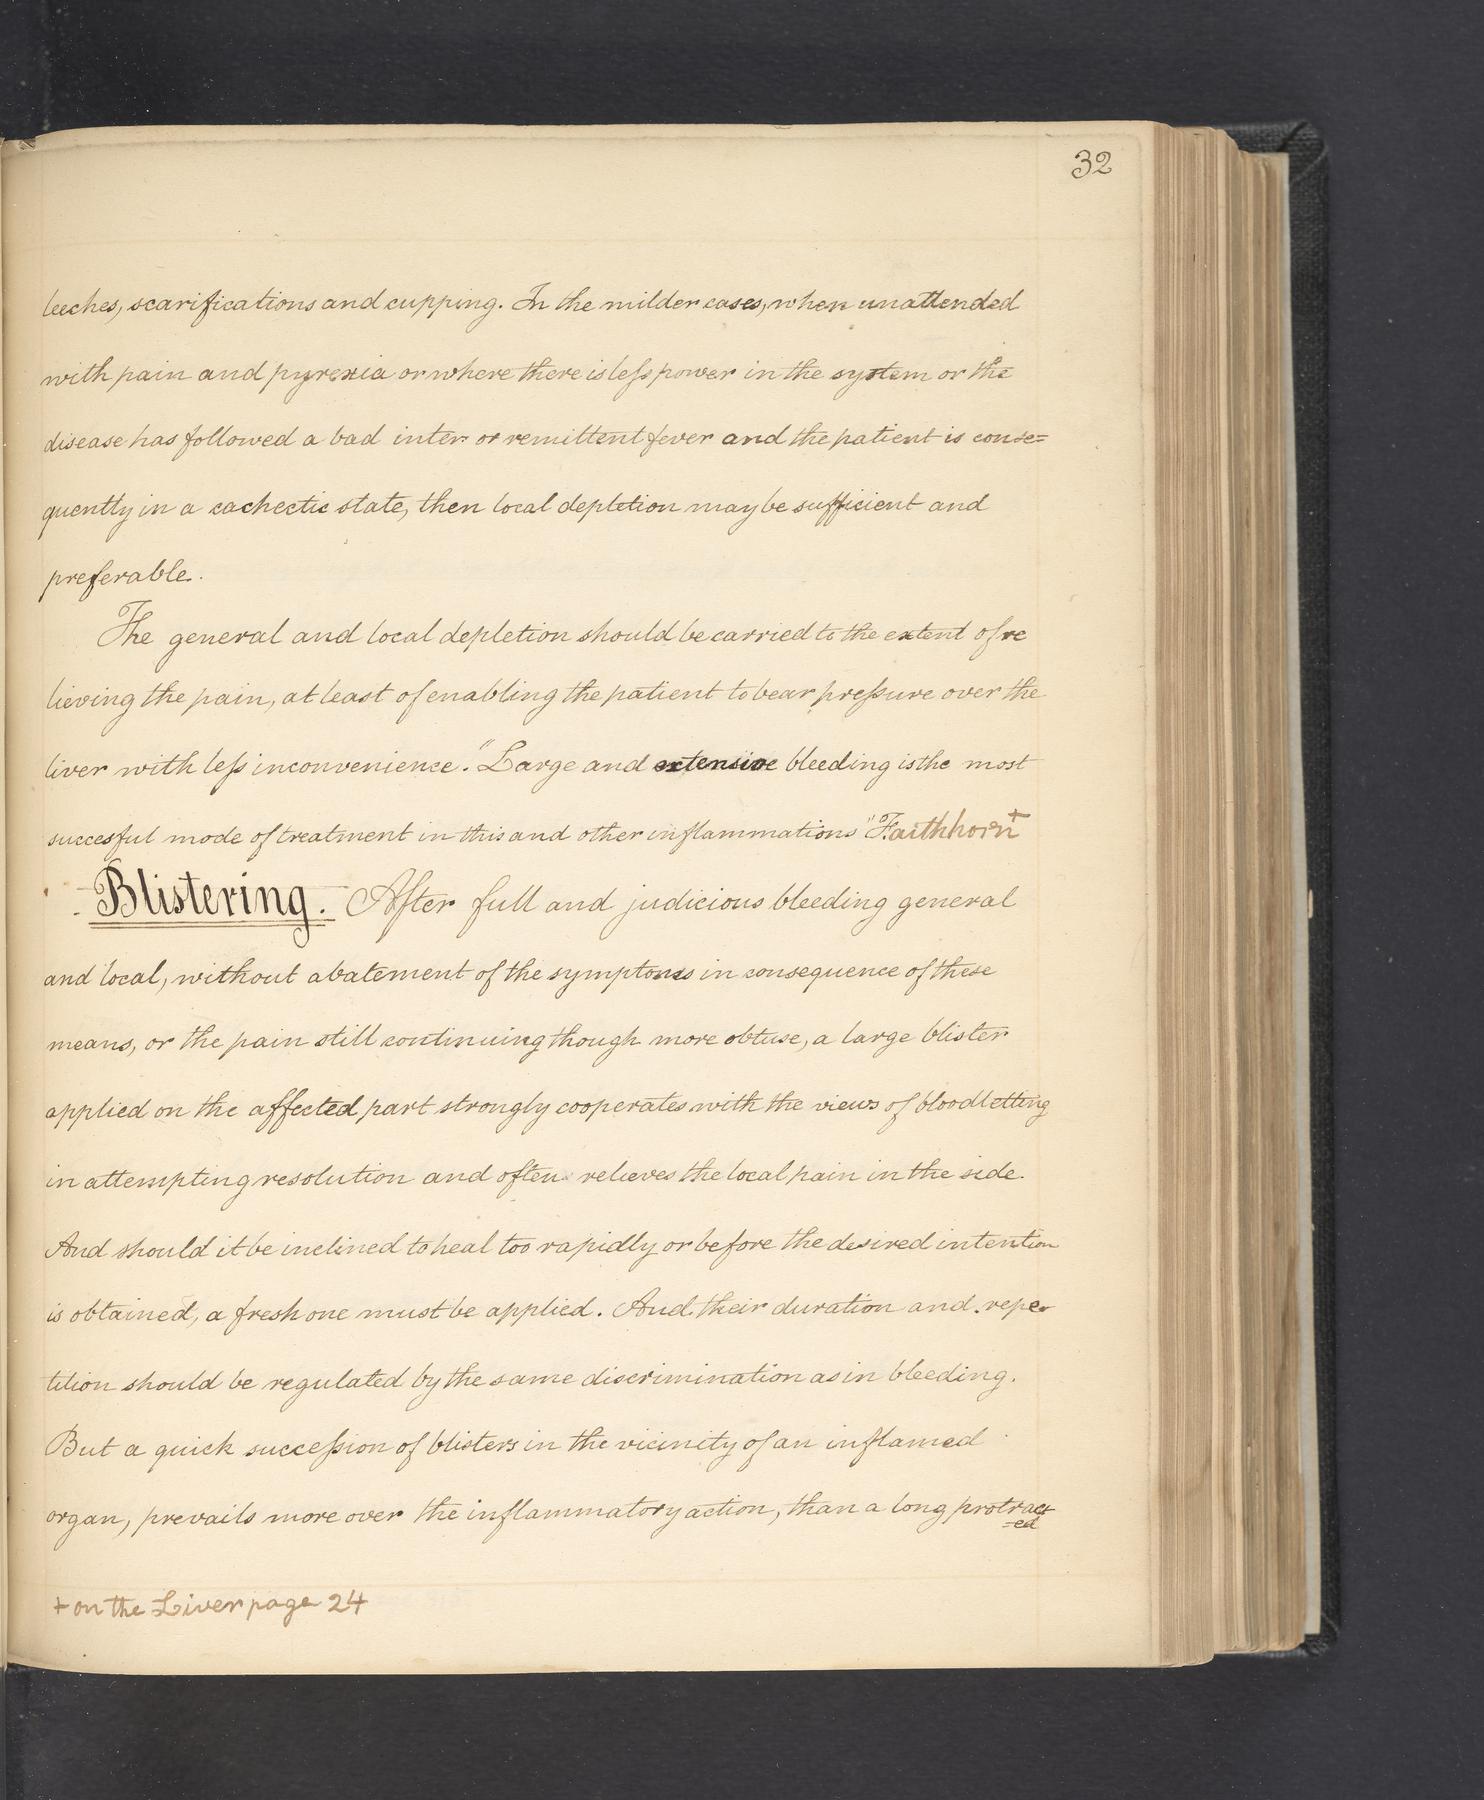 32
leeches, scarifications and cupping. In the milder cases, when unattended
with pain and pyrexia or where there is less power in the system or the
disease has followed a bad inter or remittent fever and the patient is conse=
quently in a cachectic state, then local depletion may be sufficient and
preferable.
The general and local depletion should be carried to the extent of re
lieving the pain, at least of enabling the patient to bear pressure over the
liver with less inconvenience. "Large and extensive bleeding is the most
succesful mode of treatment in this and other inflammations" Faithhorn+
Blistering. After full and judicious bleeding general
and local, without abatement of the symptoms in consequence of these
means, or the pain still continuing though more obtuse, a large blister
applied on the affected part strongly cooperates with the views of bloodletting
in attempting resolution and often relieves the local pain in the side.
And should it be inclined to heal too rapidly or before the desired intention
is obtained, a fresh one must be applied. And their duration and repe
tition should be regulated by the same discrimination as in bleeding.
But a quick succession of blisters in the vicinity of an inflamed
organ, prevails more over the inflammatory action, than a long protract
=ed
+ on the Liver page 24